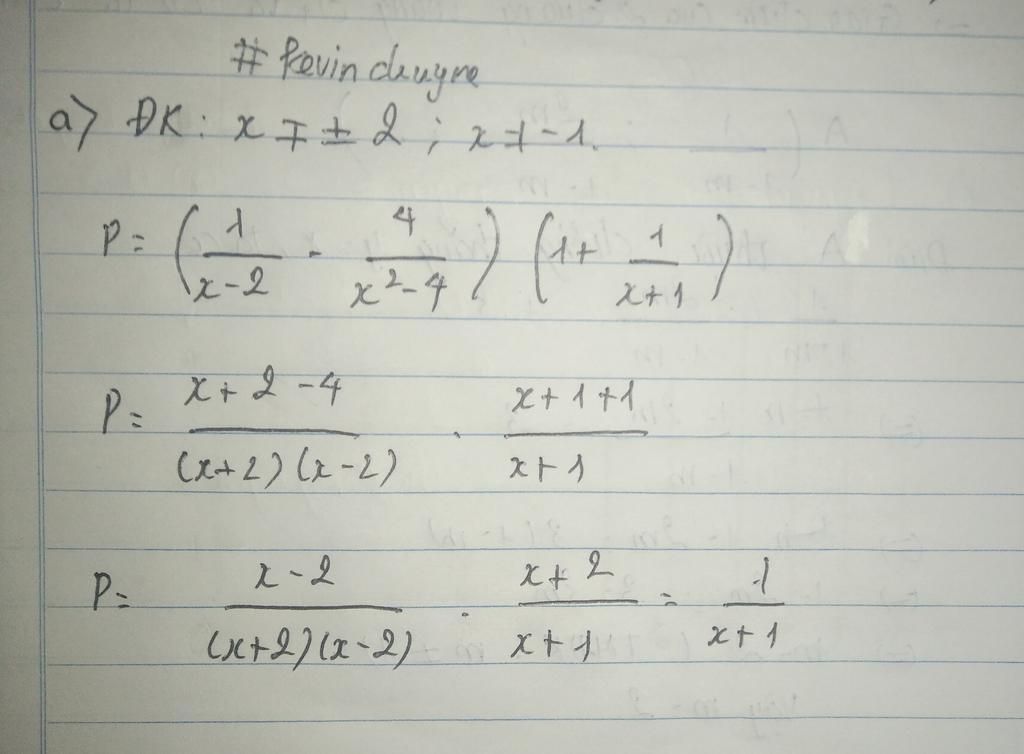 # Kevin chuyne
a) ĐK: x ≠ ± 2 ; x ≠ -1.
P = (1/(x-2) - 4/(x²-4)) (1 + 1/(x+1))
P = (x+2-4)/((x+2)(x-2)) . (x+1+1)/(x+1)
P = (x-2)/((x+2)(x-2)) . (x+2)/(x+1) = 1/(x+1)